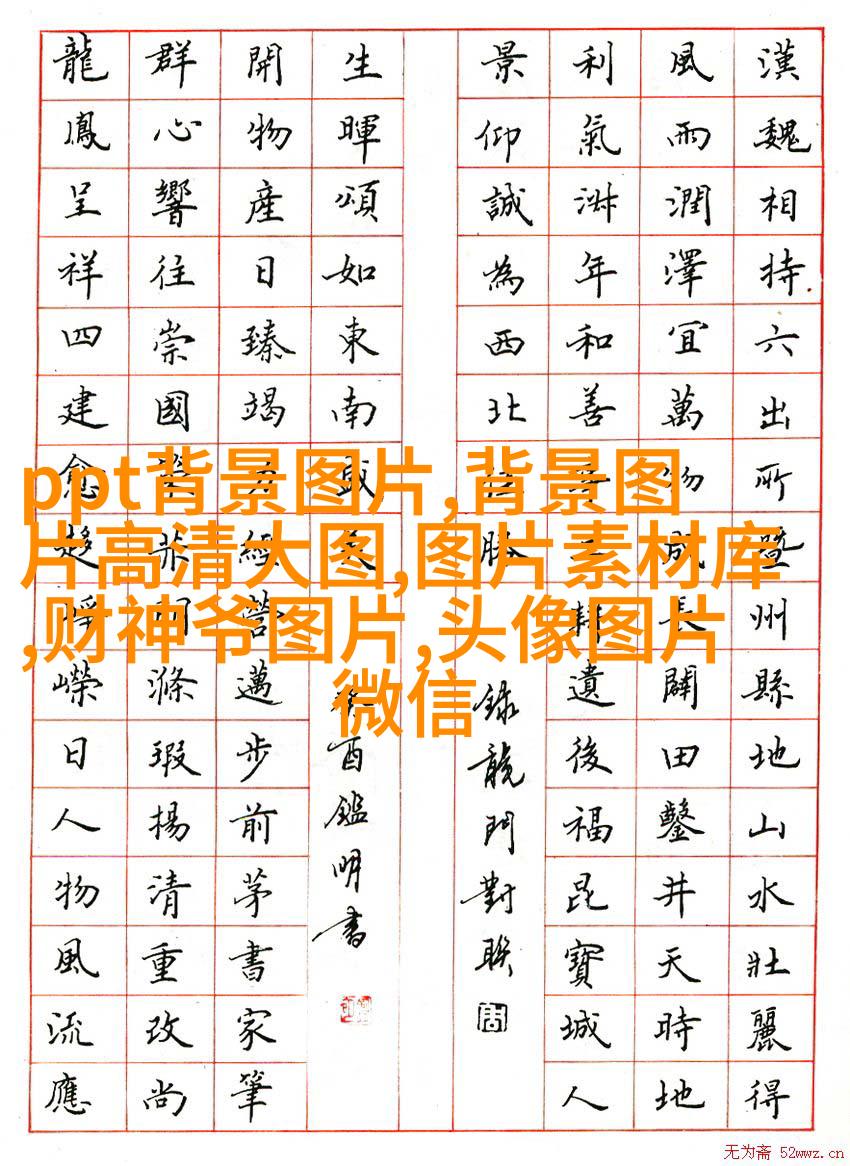 漢魏相持六出所暨州縣地山水壯麗得
風雨潤澤宜萬物成長闢田鑿井天時地
利氣淋年和善耕遺後福昆寶城人
景仰誠為西北勝
錄龍門對聯
生暉頌如東南盛
酉鑑明書
開物產日臻竭力經營邁步前茅書家筆
群心響往崇國滌瑕揚清重改尚
龍鳳呈祥四建愈趨崢嶸日人物風流應
ppt背景图片,背景图
片高清大图,图片素材库
,财神爷图片,头像图片
微信
无为斋 52wwz.cn